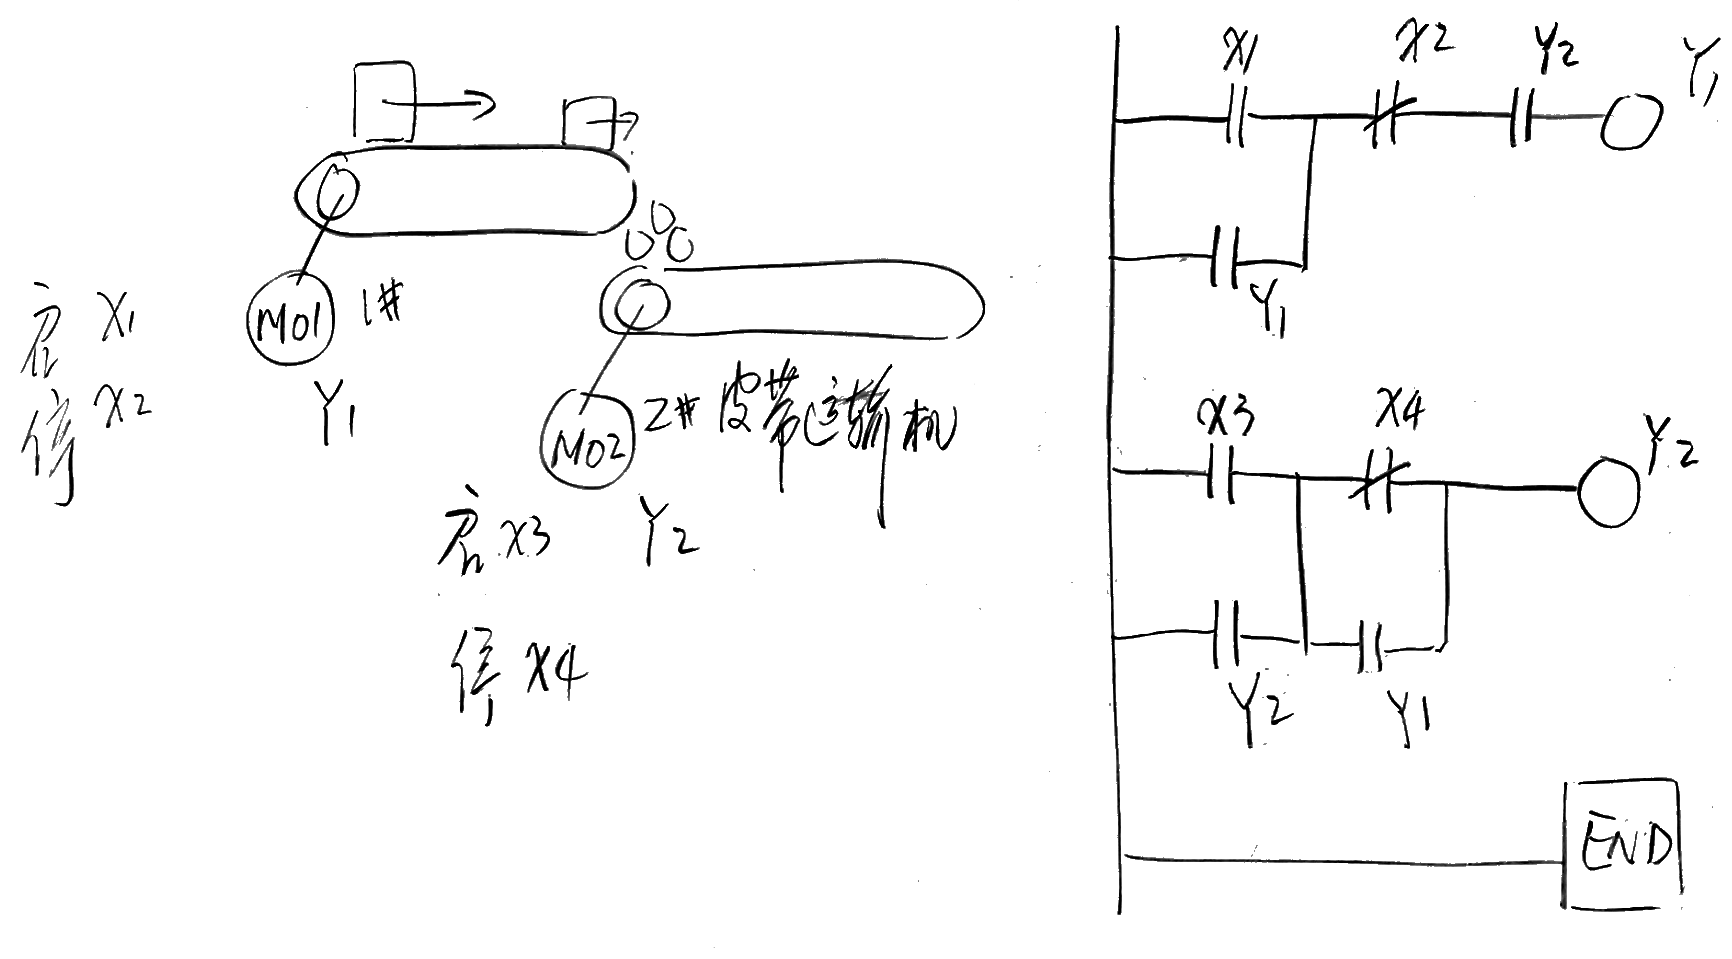 启 X1
停 X2
M01 1#
Y1
M02 2# 皮带运输机
启 X3 Y2
停 X4
X1 X2 Y2 Y1
Y1
X3 X4 Y2
Y2 Y1
END